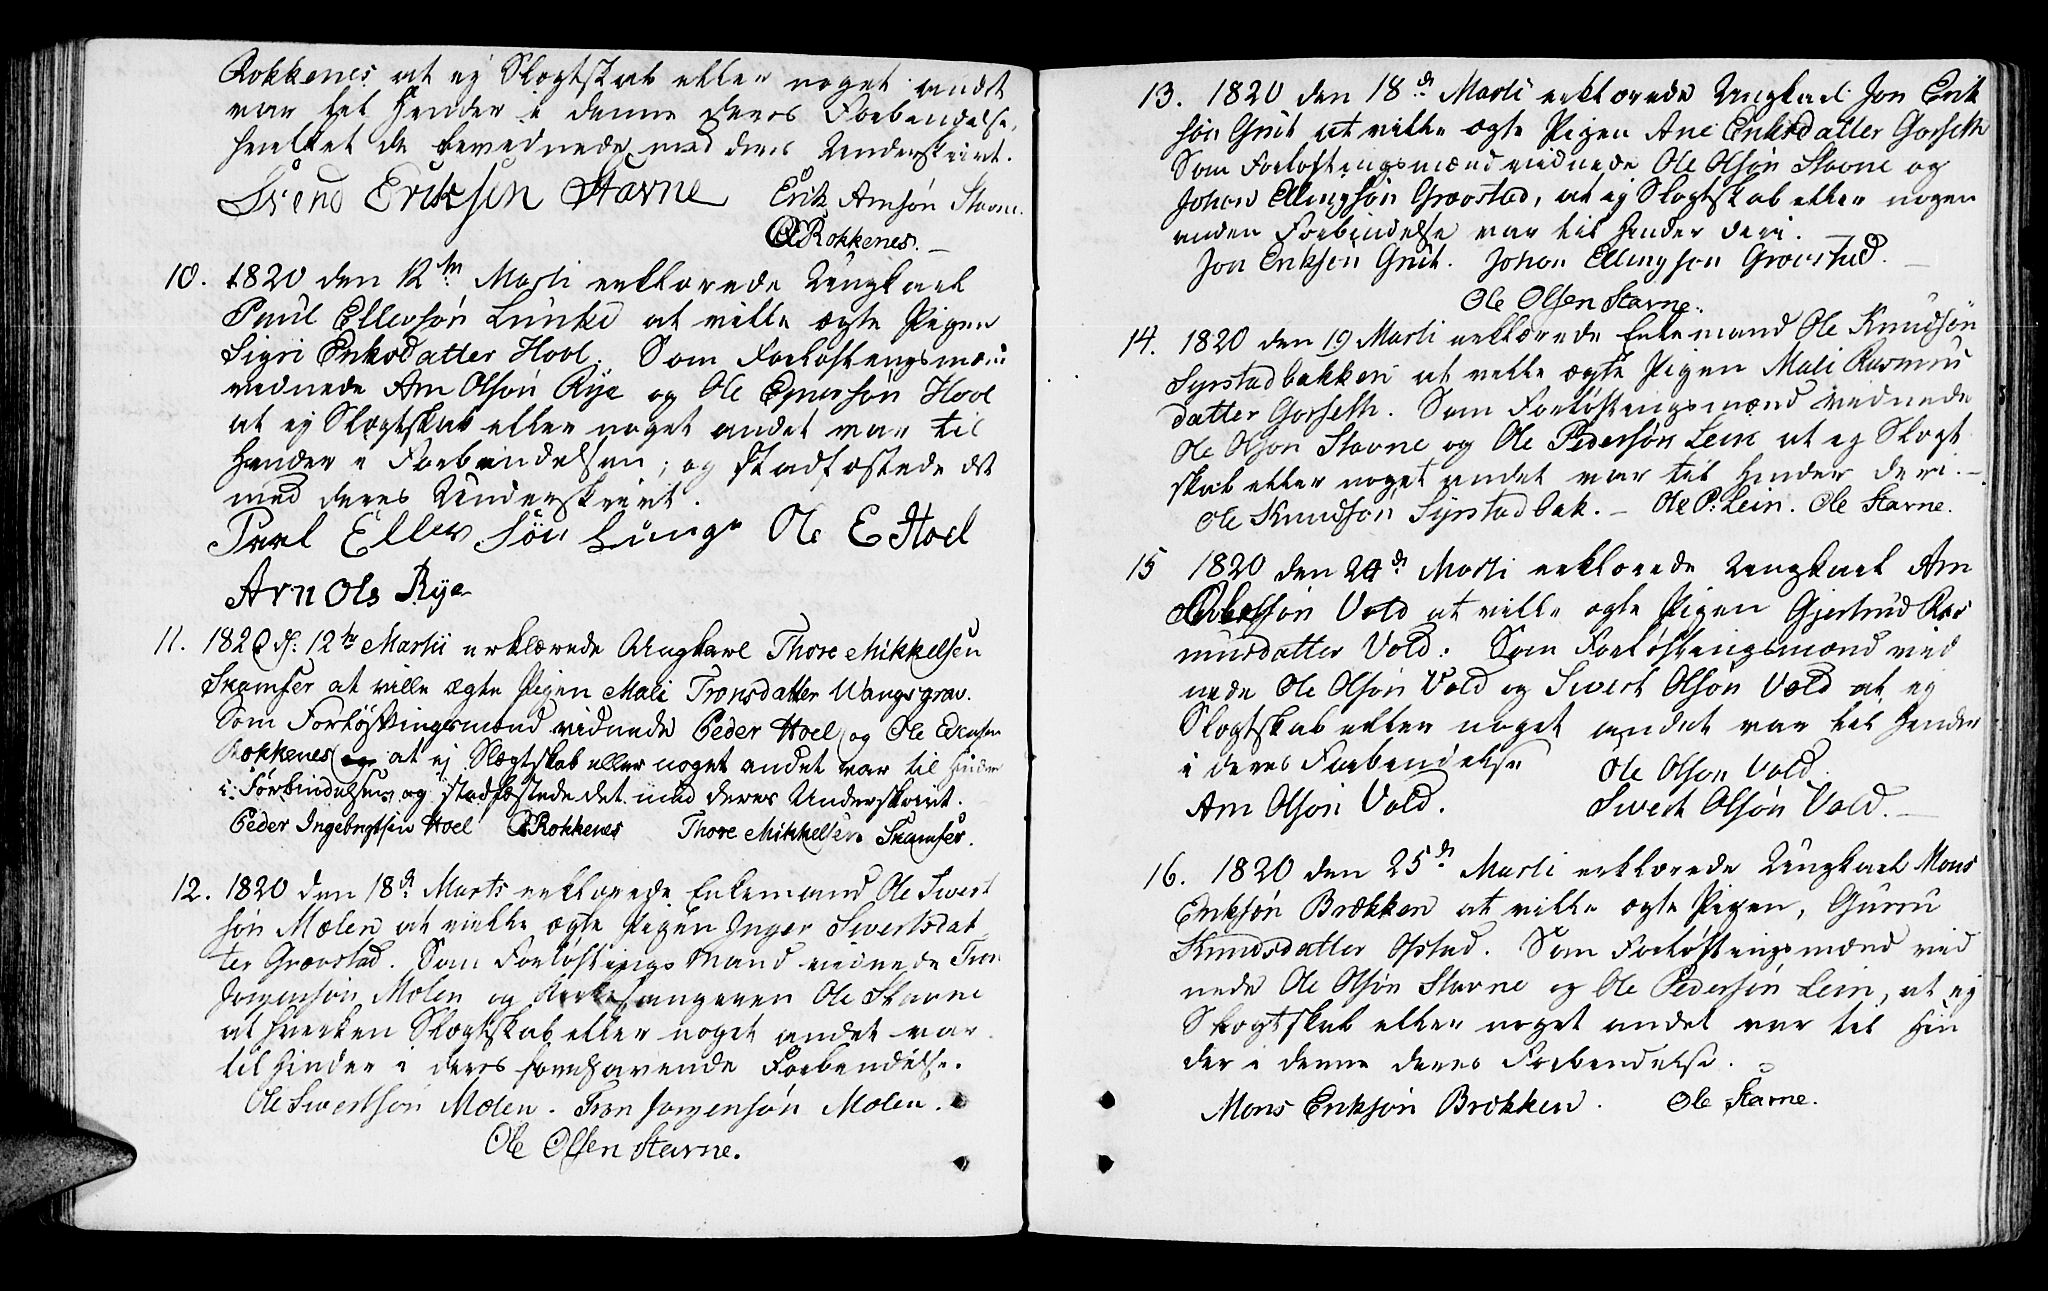 Rokkenes at ej Slægtskab eller noget andet
var til Hinder i denne deres Forbindelse,
hvilket de bevidnede med deres Underskrivt.
Svend Eriksen Stavne Erik Arnsøn Stavne.
O Rokkenes.
10. 1820 den 12te Marti erklærede Ungkarl
Paul Ellevsøn Lunke at ville ægte Pigen
Sigri Eriksdatter Hool. Som Forløftningsmænd
vidnede Arn Olsøn Rye og Ole Ejnersøn Hool
at ej Slægtskab eller noget andet var til
Hinder i Forbindelsen; og stadfæstede det
med deres Underskrivt.
Paul Ellev Søn Lunge Ole E Hoel
Arn Ols Rye
11. 1820 d. 12te Martii erklærede Ungkarl Thore Mikkelsen
Skamfer at ville ægte Pigen Mali Tronsdatter Wangsgrav.
Som Forløftningsmænd vidnede Peder Hoel og Ole
Rokkenes og at ej Slægtskab eller noget andet var til Hinder
i Forbindelsen og stadfæstede det med deres Underskrivt.
Peder Ingebrigtsen Hoel O Rokkenes Thore Mikkelsen Skamfer.
12. 1820 den 18de Marts erklærede Enkemand Ole Sivert
søn Mælen at ville ægte Pigen Inger Sivertsdat
ter Grævstad. Som Forløftnings Mænd vidnede Tron
Jørgensøn Mælen og Kirkesangeren Ole Stavne
at hverken Slægtskab eller noget andet var
til Hinder i deres forehavende Forbindelse.
Ole Sivertsøn Mælen. Tron Jørgensøn Mælen.
Ole Olsen Stavne.
13. 1820 den 18de Marti erklærede Ungkarl Jon Erik
søn Grut at ville ægte Pigen Ane Eriksdatter Gorseth
Som Forløftningsmænd vidnede Ole Olsøn Stavne og
Johan Ellingsøn Grævstad, at ej Slægtskab eller nogen
anden Forbindelse var til Hinder deri.
Jon Eriksøn Grut. Johan Ellingsøn Grævstad.
Ole Olsen Stavne.
14. 1820 den 19 Marti erklærede Enkemand Ole Knudsøn
Syrstadbakken at ville ægte Pigen Mali Rasmus
datter Gorseth. Som Forløftningsmænd vidnede
Ole Olsøn Stavne og Ole Pedersøn Lein at ej Slægt
skab eller noget andet var til Hinder deri.
Ole Knudsøn Syrstadbak. Ole P. Lein. Ole Stavne.
15 1820 den 24de Marti erklærede Ungkarl Arn
Olsøn Vold at ville ægte Pigen Gjertrud Ras
musdatter Vold. Som Forløftningsmænd vid
nede Ole Olsøn Vold og Sivert Olsøn Vold at ej
Slægtskab eller noget andet var til Hinder
i deres Forbindelse Ole Olsøn Vold
Arn Olsøn Vold. Sivert Olsøn Vold.
16. 1820 den 25de Marti erklærede Ungkarl Mons
Eriksøn Brækken at ville ægte Pigen, Gurru
Knudsdatter Opstad. Som Forløftningsmænd vid
nede Ole Olsøn Stavne og Ole Pedersøn Lein, at ej
Slægtskab eller noget andet var til Hin
der i denne deres Forbindelse.
Mons Eriksøn Brækken. Ole Stavne.